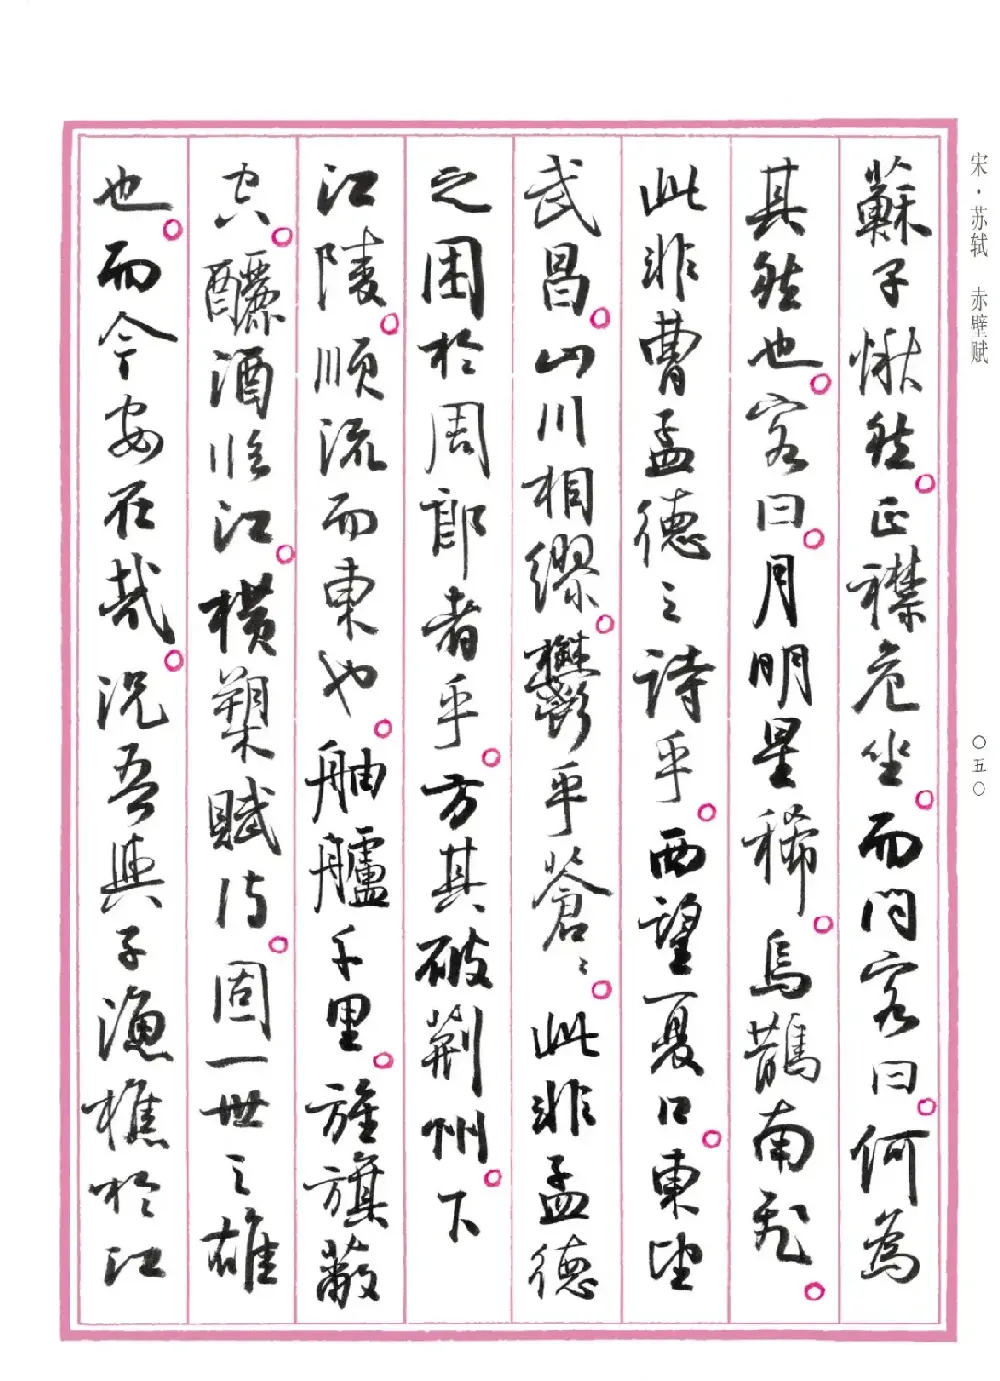 宋·苏轼 赤壁赋
〇五〇
蘇子愀然。正襟危坐。而問客曰。何為
其然也。客曰。月明星稀。烏鵲南飛。
此非曹孟德之詩乎。西望夏口。東望
武昌。山川相繆。鬱乎蒼々。此非孟德
之困於周郎者乎。方其破荊州。下
江陵。順流而東也。舳艫千里。旌旗蔽
空。釃酒臨江。橫槊賦詩。固一世之雄
也。而今安在哉。況吾與子漁樵於江